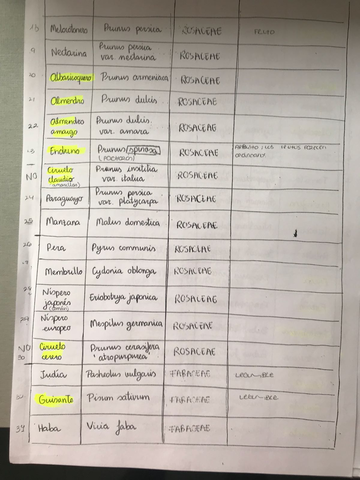 Melocotonero Prunus persica ROSACEAE FRUTO
9 Nectarina Prunus persica var. nectarina ROSACEAE
Albaricoquero Prunus armeniaca ROSACEAE
21 Almendro Prunus dulcis ROSACEAE
22 Almendro amargo Prunus dulcis var. amara ROSACEAE
23 Endrino Prunus spinosa (PACHARÁN) ROSACEAE
NO Ciruelo claudio (amarillas) Prunus insititia var. italica ROSACEAE
24 Paraguayo Prunus persica var. platycarpa ROSACEAE
25 Manzana Malus domestica ROSACEAE
26 Pera Pyrus communis ROSACEAE
Membrillo Cydonia oblonga ROSACEAE
Níspero japonés Eriobotrya japonica ROSACEAE
29 Níspero europeo Mespilus germanica ROSACEAE
NO 30 Ciruelo cerezo Prunus cerasifera "atropurpurea" ROSACEAE
Judía Phaseolus vulgaris FABACEAE LEGUMBRE
Guisante Pisum sativum FABACEAE LEGUMBRE
Haba Vicia faba FABACEAE